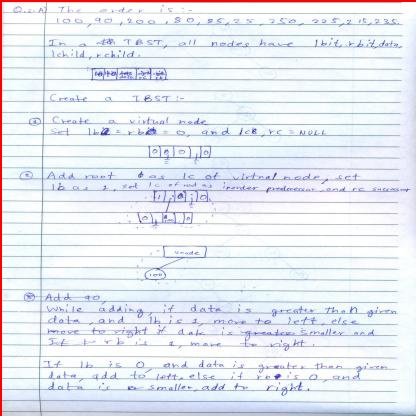 Q.2.A) The order is :-
100, 90, 200, 80, 85, 25, 250, 225, 215, 235.
In a TBST, all nodes have lbit, rbit, data,
lchild, rchild.
Create a TBST :-
Create a virtual node
Set lb = rb = 0, and lc, rc = NULL
0 0 0
Add root as lc of virtual node, set
lb as 1, set lc of root as inorder predecessor and rc successor
vnode
100
Add 90,
While adding, if data is greater than given
data, and lb is 1, move to left, else
move to right if data is greater smaller and
If rb is 1, move to right.
If lb is 0, and data is greater than given
data, add to left, else if rb is 0, and
data is smaller, add to right.